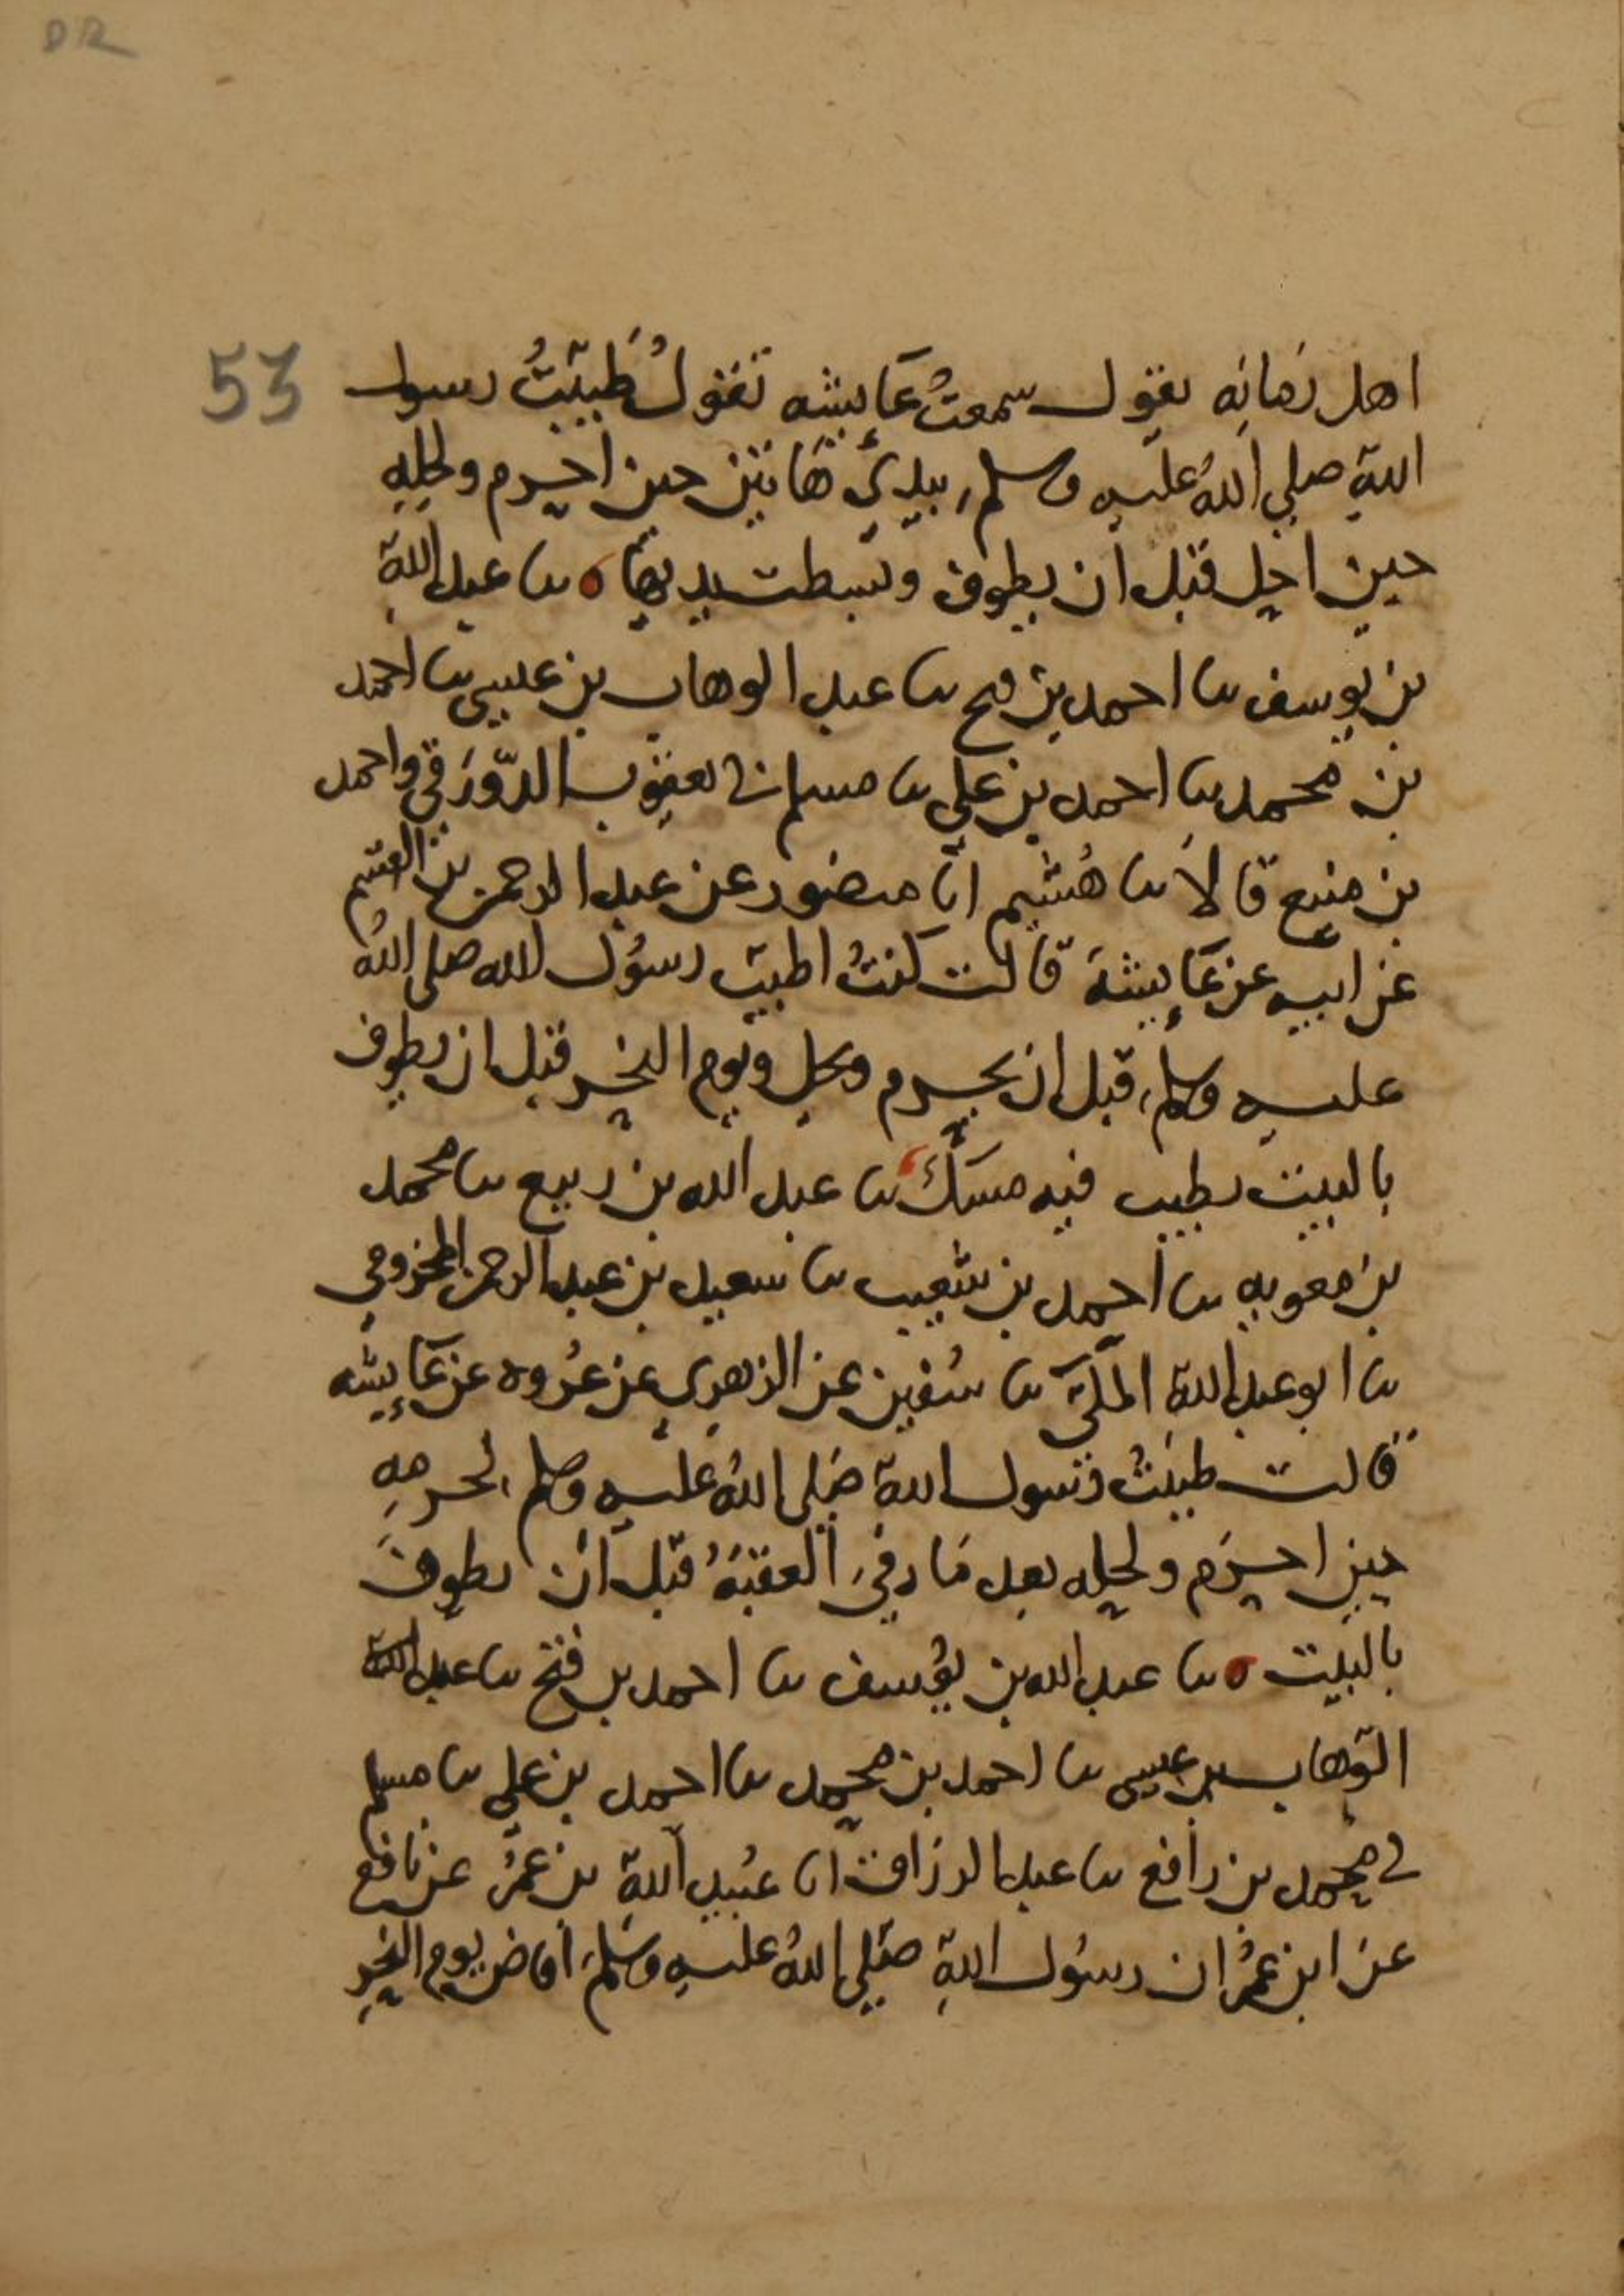 DR
53
اهل زمانه يقول سمعتُ عَايشه تقولُ طَيبتُ رسول
اللهِ صلي اللهُ عليه وسلم بيديَّ هَاتين حين احرم ولحِلهِ
حين احل قبل ان يطوف وبسطت يديها ٥ نا عبد الله
بن يوسف نا احمد بن فتح نا عبد الوهاب بن عيسى نا احمد
بن محمد نا احمد بن علي نا مسلم ني يعقوب الدّورَقي واحمد
بن منيع قالا نا هُشيم انا منصور عن عبد الرحمن بن القسم
عن ابيه عن عَايشةَ قالت كنتُ اطيب رسُول الله صلى اللهُ
عليه وسلم قبل ان يحرم ويحل ويوم النحر قبل ان يطوف
بالبيت بطيب فيه مسكٌ نا عبد الله بن ربيع نا محمد
بن معويه نا احمد بن شعيب نا سعيد بن عبد الرحمن المخزومي
نا ابو عبد الله المكّي نا سُفين عن الزهري عن عُروه عن عَايشه
قالت طيبتُ رسول اللهِ صَلى اللهُ عليه وسلم لحرمهِ
حين احرَم ولحله بعد مَا رمى العقبَهُ قبل ان يطوفَ
بالبيت ٥ نا عبد الله بن يُوسف نا احمد بن فتح نا عبد
الوَهاب بن عيسى نا احمد بن محمد نا احمد بن علي نا مسلم
ني محمد بن رافع نا عبد الرزاق انا عُبيد اللهِ بن عمَر عن نافع
عن ابن عُمَر ان رسُول اللهِ صَلي اللهُ عليهِ وسَلم افاض يوم النحرِ